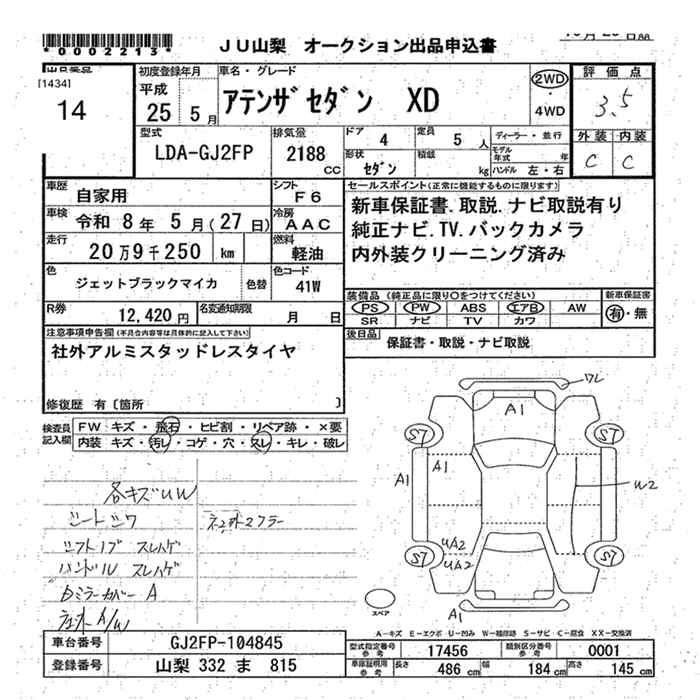 *0002213*
JU山梨 オークション出品申込書
出品番号
[1434]
14
初度登録年月
平成
25 5月
車名・グレード
アテンザセダン XD
2WD
・
4WD
評価点
3.5
外装 内装
C C
型式
LDA-GJ2FP
排気量
2188
CC
ドア 4
定員 5 人
形状 セダン
積載 kg
ディーラー・並行
モデル年式 年
ハンドル 左・右
車歴
自家用
シフト
F6
車検
令和 8年 5月(27日)
冷房
AAC
走行
20万9千250 km
燃料
軽油
色
ジェットブラックマイカ
色替
色コード
41W
R券
12,420円
名変通知期限
月 日
セールスポイント(正常に機能するものに限ります)
新車保証書.取説.ナビ取説有り
純正ナビ.TV.バックカメラ
内外装クリーニング済み
装備品(純正品に限り○をつけてください)
新車保証書
PS PW ABS エアB AW
SR ナビ TV カワ
有・無
後日品
保証書・取説・ナビ取説
注意事項申告欄(不具合内容等は具体的に記入して下さい)
社外アルミスタッドレスタイヤ
修復歴 有〔箇所 〕
検査員記入欄
FW キズ・飛石・ヒビ割・リペア跡・×要
内装 キズ・汚レ・コゲ・穴・スレ・キレ・破レ
各キズUW
シートシワ
ネジ外マフラー
シフトノブ スレハゲ
ハンドル スレハゲ
Dミラーカバー A
A/W
ワレ
A1
S7
S7
A1
A1
W2
UA2
UA2
S7
S7
A1
スペア
A-キズ E-エクボ U-凹み W-補修跡 S-サビ C-腐食 XX-交換済
車台番号
GJ2FP-104845
登録番号
山梨 332 ま 815
型式指定番号
参考
17456
類別区分番号
参考
0001
車庫証明用
参考
長さ 486 cm
幅 184 cm
高さ 145 cm